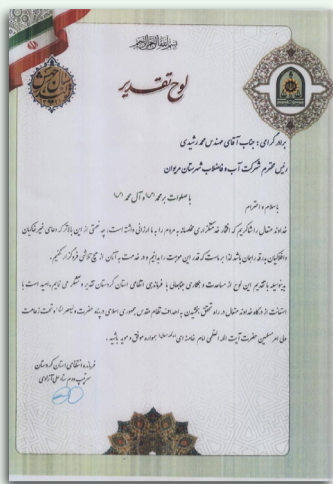 بسم الله الرحمن الرحیم
لوح تقدیر
برادر گرامی: جناب آقای مهندس محمد رشیدی
رئیس محترم شرکت آب و فاضلاب شهرستان مریوان
با صلوات بر محمد (ص) و آل محمد (ص)
با سلام و احترام
خداوند متعال را شاکریم که افتخار خدمتگزاری خالصانه به مردم را به ما ارزانی داشته است، چه نعمتی از این بالاتر که دعای خیر خاکیان
و افلاکیان بدرقه راهمان باشد لذا بر ماست که قدر این موهبت را بدانیم و در خدمت به آنان از هیچ تلاشی فروگذار نکنیم.
بدینوسیله با تقدیم این لوح از مساعدت و همکاری جنابعالی با فرماندهی انتظامی استان کردستان تقدیر و تشکر می نمایم، امید است با
استعانت از درگاه خداوند متعال در راه تحقق بخشیدن به اهداف نظام مقدس جمهوری اسلامی و در پناه حضرت ولیعصر (عج) و تحت زعامت
ولی امر مسلمین حضرت آیت الله العظمی امام خامنه ای همواره موفق و موید باشید.
فرمانده انتظامی استان کردستان
سرتیپ دوم ستاد علی آزادی